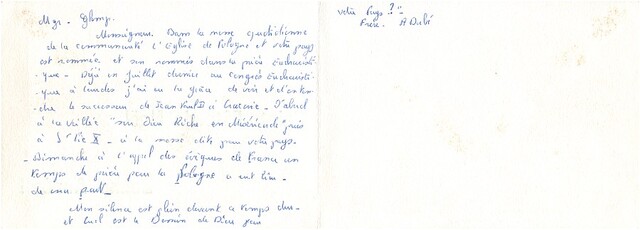 Mgr - Glemp.
Monseigneur. Dans la messe quotidienne
de la communauté l'Eglise de Pologne et votre pays
est nommée et son nommés dans la prière Eucharisti
- que - Déjà en Juillet dernier au congrès Eucharisti
- que à Lourdes j'ai eu la grâce de voir et d'enten
- dre le successeur de Jean Paul II à Cracovie - D'abord
à la veillée "sur Dieu Riche en Miséricorde" puis
à St Pie X - à la messe dite pour votre pays.
- Dimanche à l'appel des évêques de France un
temps de prière pour la Pologne a eut lieu -
de ma part -
Mon silence est plein devant ce temps dur -
et quel est le Dessein de Dieu pour
votre Pays ? -
Frère. A Dubé